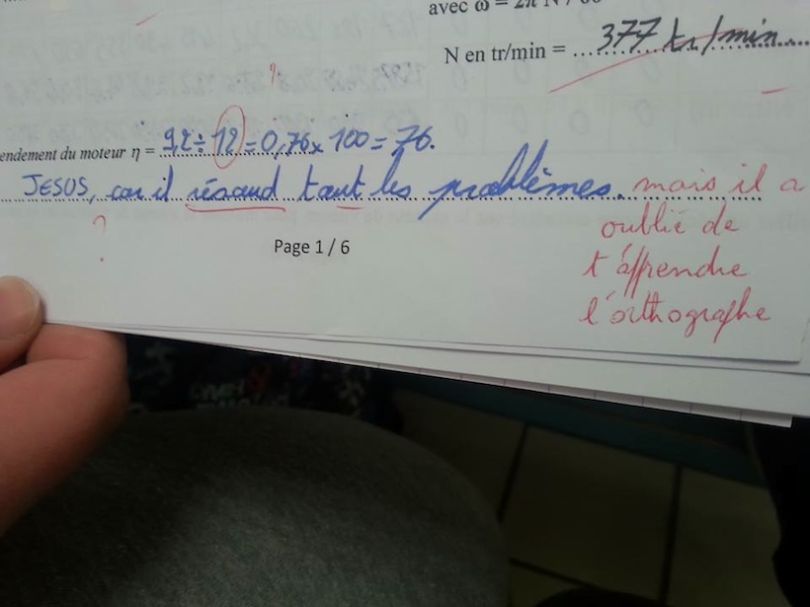 avec ω = 2π N / 60
N en tr/min = ... 377 tr/min
?
endement du moteur η = 9,2 ÷ 12 = 0,76 x 100 = 76.
JESUS, car il résaud taut les problèmes. mais il a
? oublié de
Page 1 / 6
t'apprendre
l'orthographe